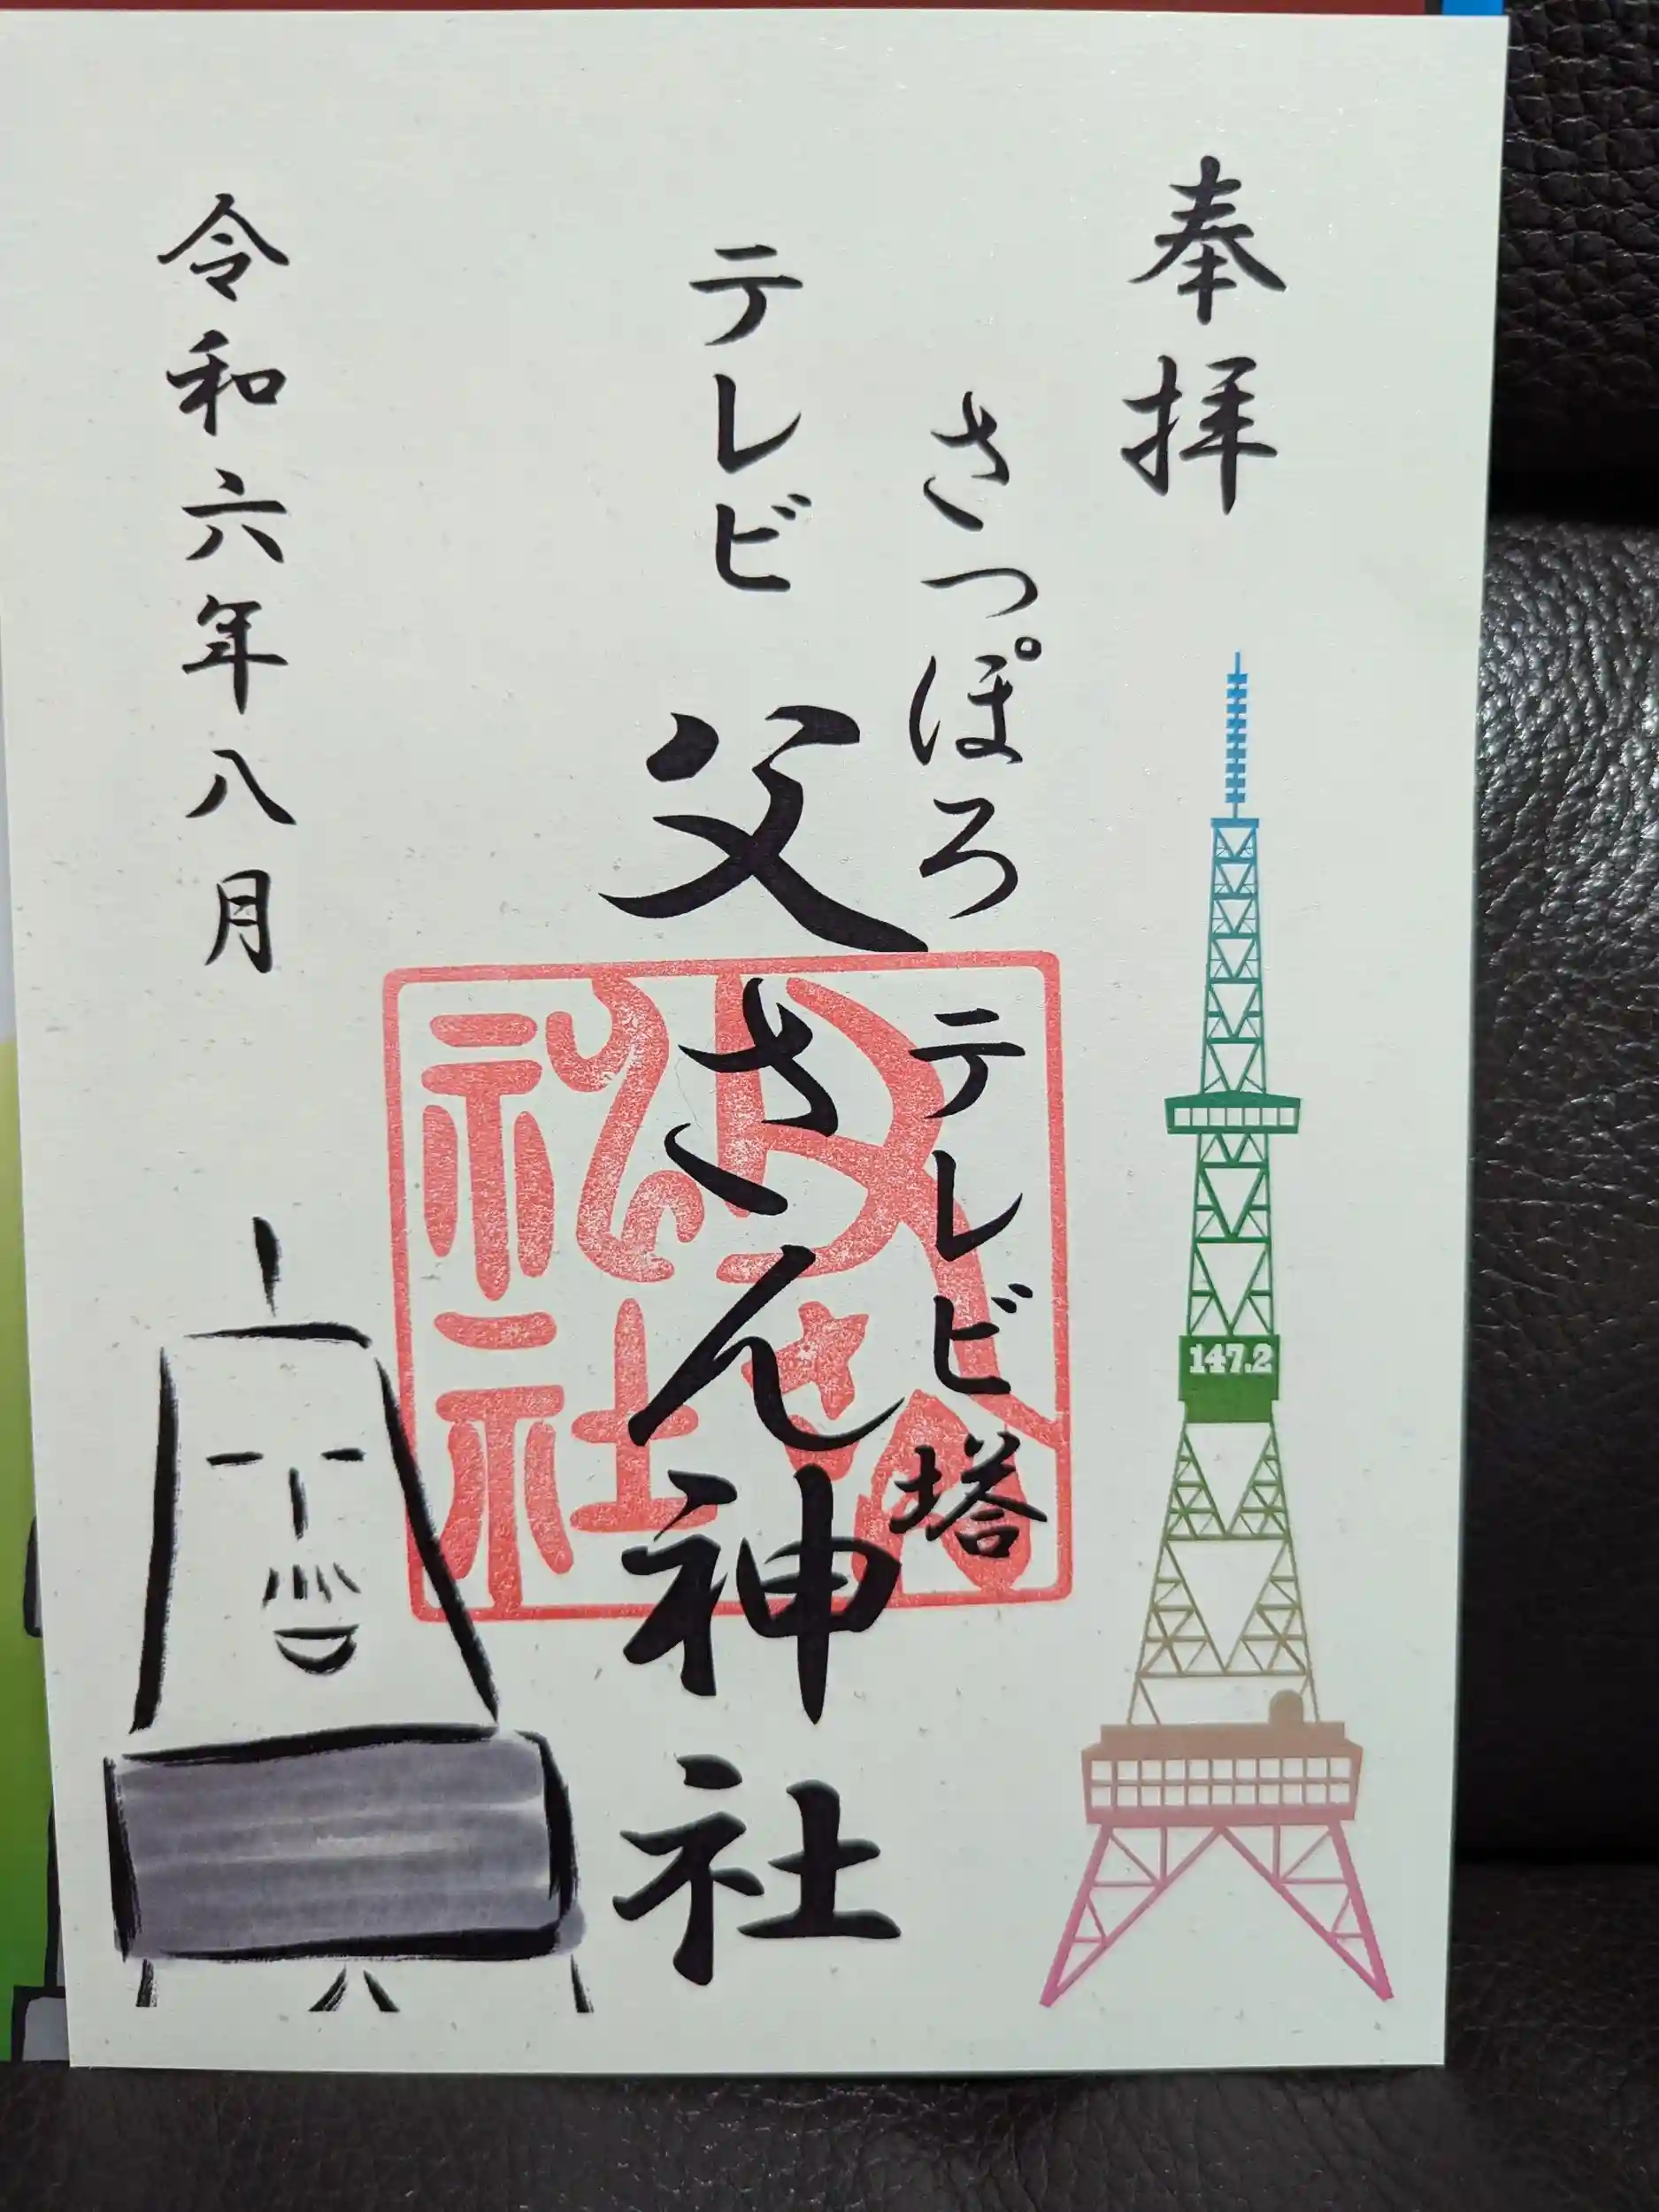 奉拝
147.2
さっぽろテレビ塔
テレビ父さん神社
父さん
神社
令和六年八月